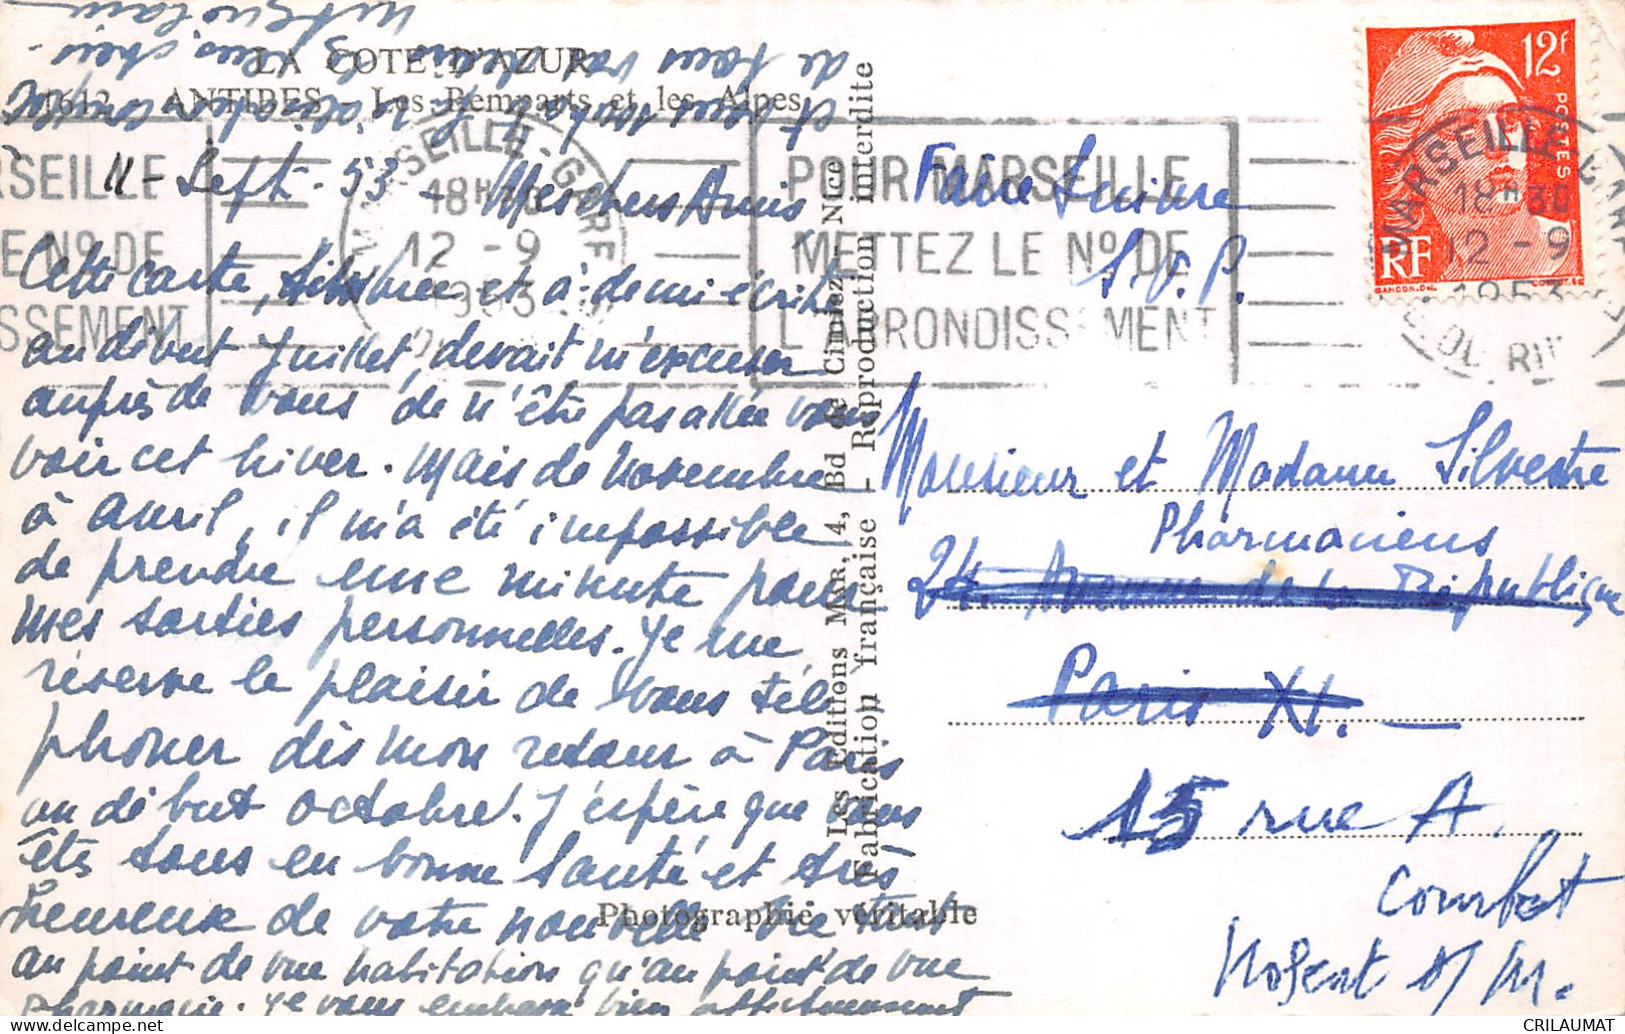 LA COTE D'AZUR
1612 - ANTIBES - Les Remparts et les Alpes
11 - Sept. 53 - Mes chers Amis
Cette carte, timbrée et à demi écrite
au début Juillet, devait m'excuser
auprès de vous de n'être pas allée vous
voir cet hiver. Mais de novembre
à Avril, il m'a été impossible
de prendre une minute pour
mes sorties personnelles. Je me
réserve le plaisir de vous télé
phoner dès mon retour à Paris
au début octobre. J'espère que vous
êts tous en bonne santé et très
heureux de votre nouvelle vie tant
au point de vue habitation qu'au point de vue
pharmacie. Je vous embrasse bien affectueusement
et vous
de tous
Photographie véritable
Les Editions MAR, 4, Bd de Cimiez - Nice
Fabrication française - Reproduction interdite
MARSEILLE-GARE
18H30
12 - 9
1953
POUR MARSEILLE
METTEZ LE No DE
L'ARRONDISSEMENT
RSEILLE
E No DE
SSEMENT
12F
POSTES
RF
GANDON.DEL.
MARSEILLE GARE
18H30
12 - 9
1953
Faire Suivre
S.V.P.
Monsieur et Madame Silvestre
Pharmaciens
24. Avenue de la République
Paris XI. -
15 rue A.
Combet
Nogent s/ M.
CRILAUMAT